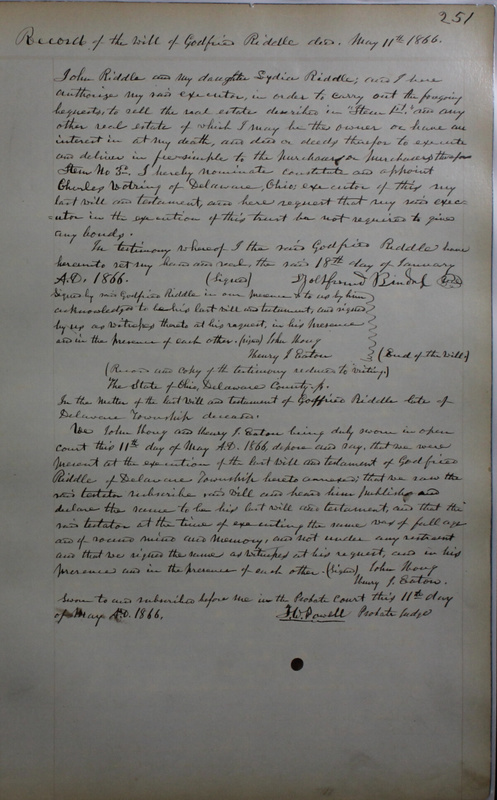 251
Record of the Will of Godfried Riddle decd. May 11th 1866.
John Riddle and my daughter Lydia Riddle; and I here
authorise my said executor, in order to carry out the forgoing
bequests, to sell the real estate described in "Item 1st." and any
other real estate of which I may be the owner or have an
interest in at my death, and deed or deeds therefor to execute
and deliver in fee simple to the purchaser or purchasers therefor
Item No 3rd. I hereby nominate constitute and appoint
Charles Votring of Delaware, Ohio, executor of this my
last will and testament, and here request that my said exec-
utor in the execution of this trust be not required to give
any bonds.
In testimony whereof I the said Godfried Riddle have
hereunto set my hand and seal, the said 18th day of January
A.D. 1866. (Signed)
Signed by said Godfried Riddle in our presence & to us by him
acknowledged to be his last will and testament, and signed
by us as witnesses thereto at his request, in his presence
and in the presence of each other. (signed) John Houg
Henry J. Eaton (End of the Will)
(Record and copy of the testimony reduced to writing.)
The State of Ohio, Delaware County ss.
In the Matter of the last Will and testament of Godfried Riddle late of
Delaware Township deceased.
We John Houg and Henry J. Eaton being duly sworn in open
court this 11th day of May A.D. 1866, depose and say, that we were
present at the execution of the last will and testament of Godfried
Riddle of Delaware Township hereto annexed; that we saw the
said testator subscribe said Will and heard him publish and
declare the same to be his last will and testament, and that the
said testator at the time of executing the same was of full age
and of sound mind and memory, and not under any restraint
and that we signed the same as witnesses at his request, and in his
presence and in the presence of each other. (Signed) John Houg
Henry J. Eaton.
Sworn to and subscribed before me in the Probate Court this 11th day
of May A.D. 1866. T.W. Powell Probate Judge